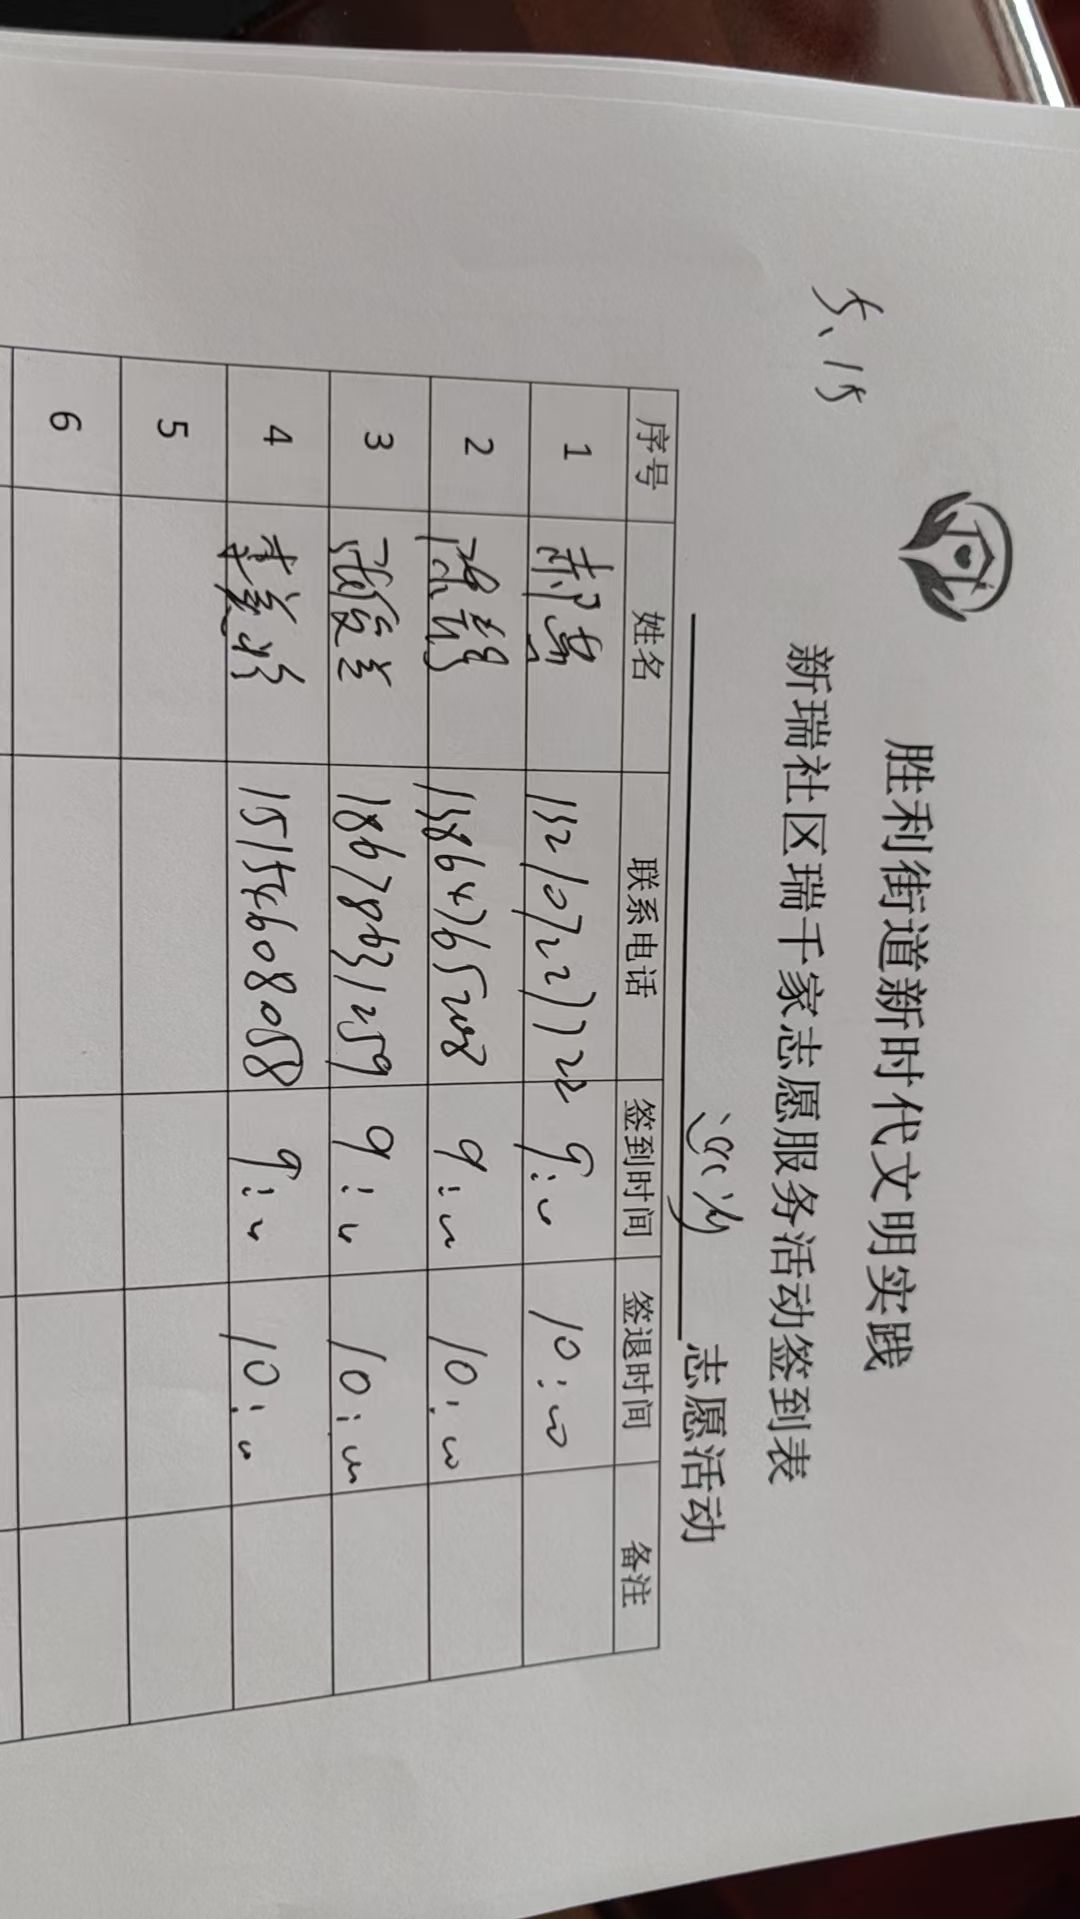 5、15
胜利街道新时代文明实践
新瑞社区瑞千家志愿服务活动签到表
志愿活动
序号 姓名 联系电话 签到时间 签退时间 备注
1 郝 9:00 10:00
2 13864765208 9:00 10:00
3 张俊兰 18678631259 9:00 10:00
4 李美玲 15154608058 9:00 10:00
5
6